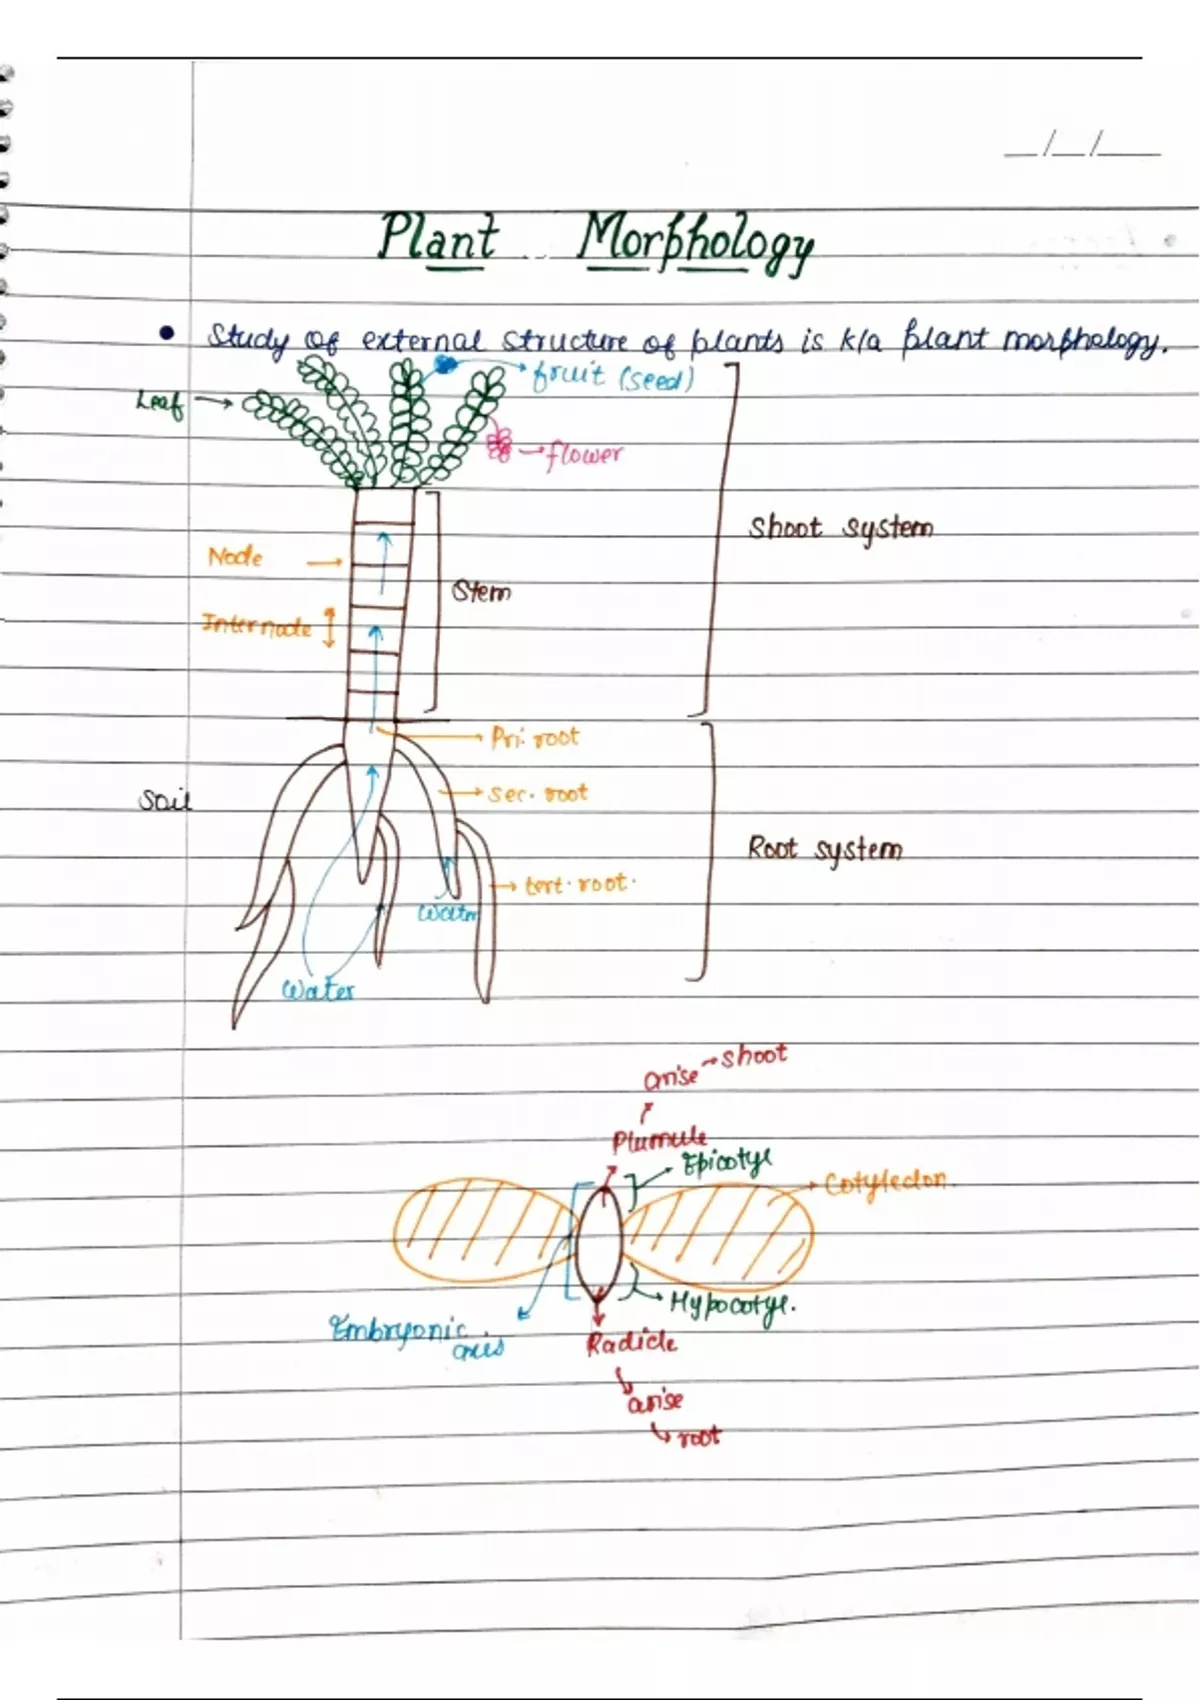 __/__/____
Plant Morphology
• Study of external structure of plants is k/a plant morphology.
fruit (seed)
Leaf
flower
Shoot system
Node
Stem
Internode
Pri. root
Sec. root
Soil
Root system
tert. root.
Water
Water
arise shoot
Plumule
Epicotyl
Cotyledon.
Hypocotyl.
Embryonic
axis
Radicle
arise
root